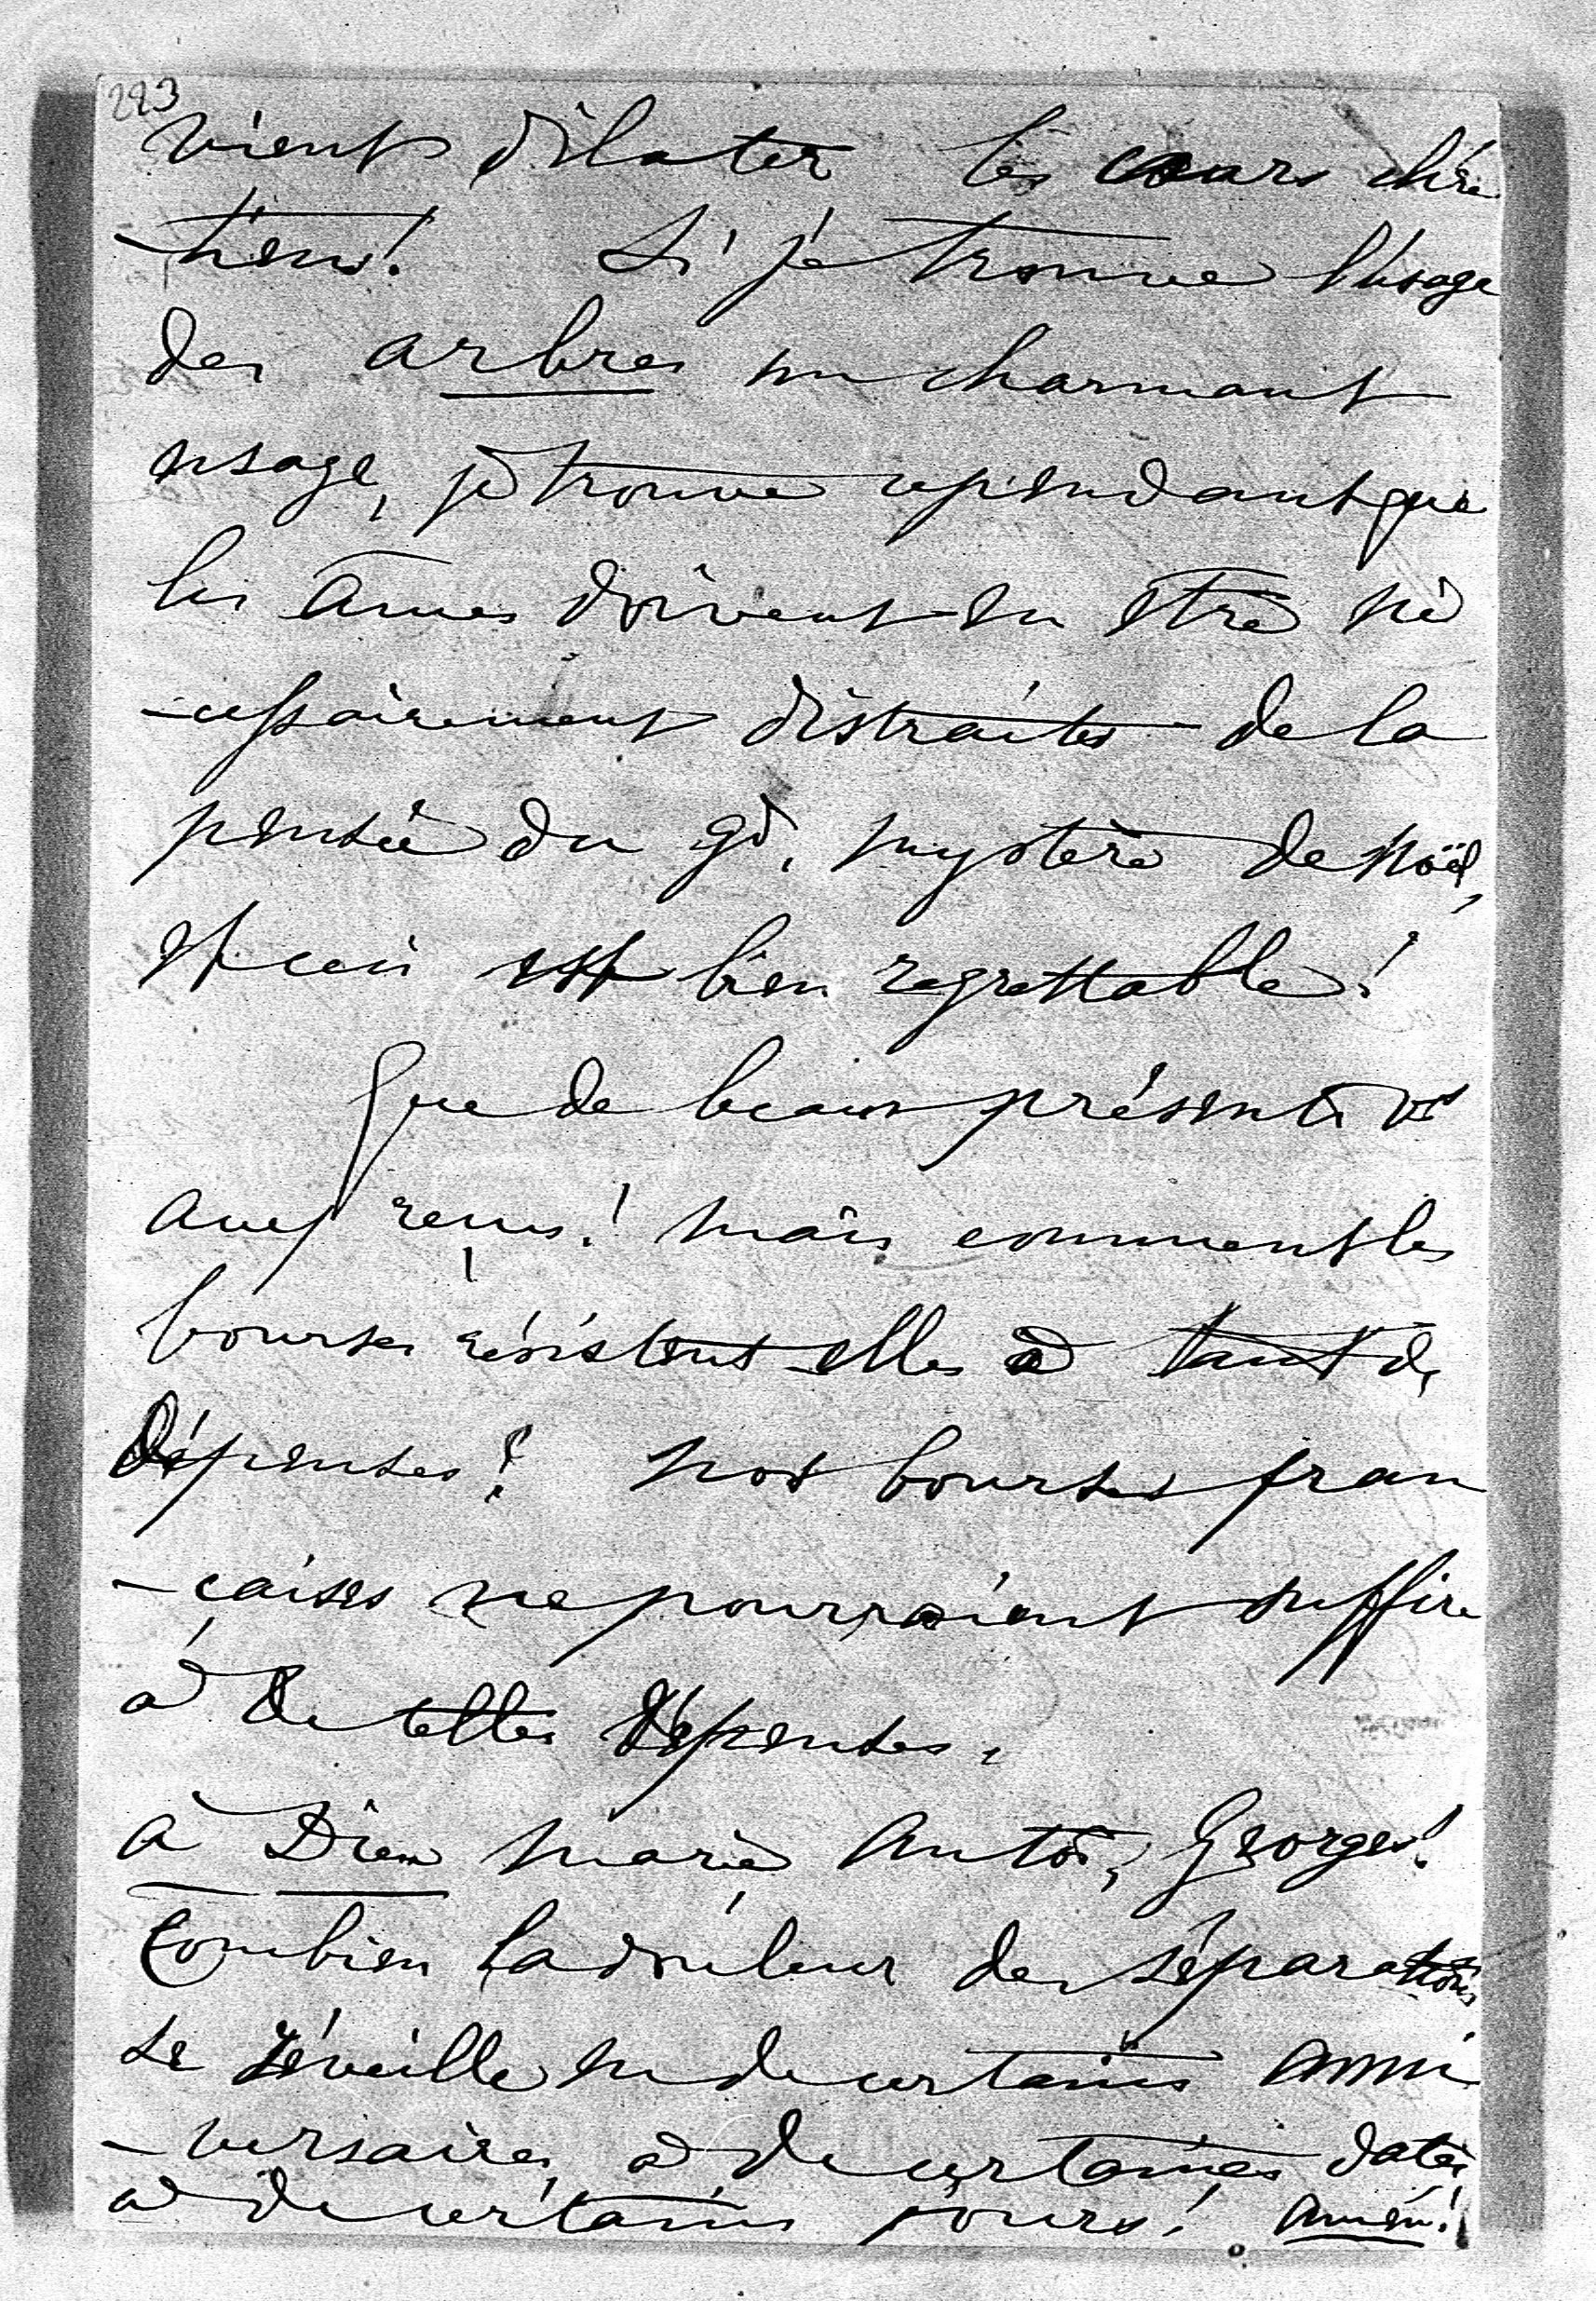 223
vient dilater les cœurs chré
-tiens! Si je trouve l'usage
des arbres un charmant
usage, je trouve cependant que
les âmes doivent en être né
-cessairement distraites de la
pensée du gd. mystère de Noël,
et ceci est bien regrettable!
Que de beaux présents vs
avez reçus! Mais comment les
bourses résistent-elles à tant de
dépenses? Nos bourses fran
-çaises ne pourraient suffire
à de telles dépenses.
à Dieu Marie Antoi, Georges!
Combien la douleur des séparations
se réveille en de certains anni
-versaires, à de certaines dates
à de certains jours! amen!